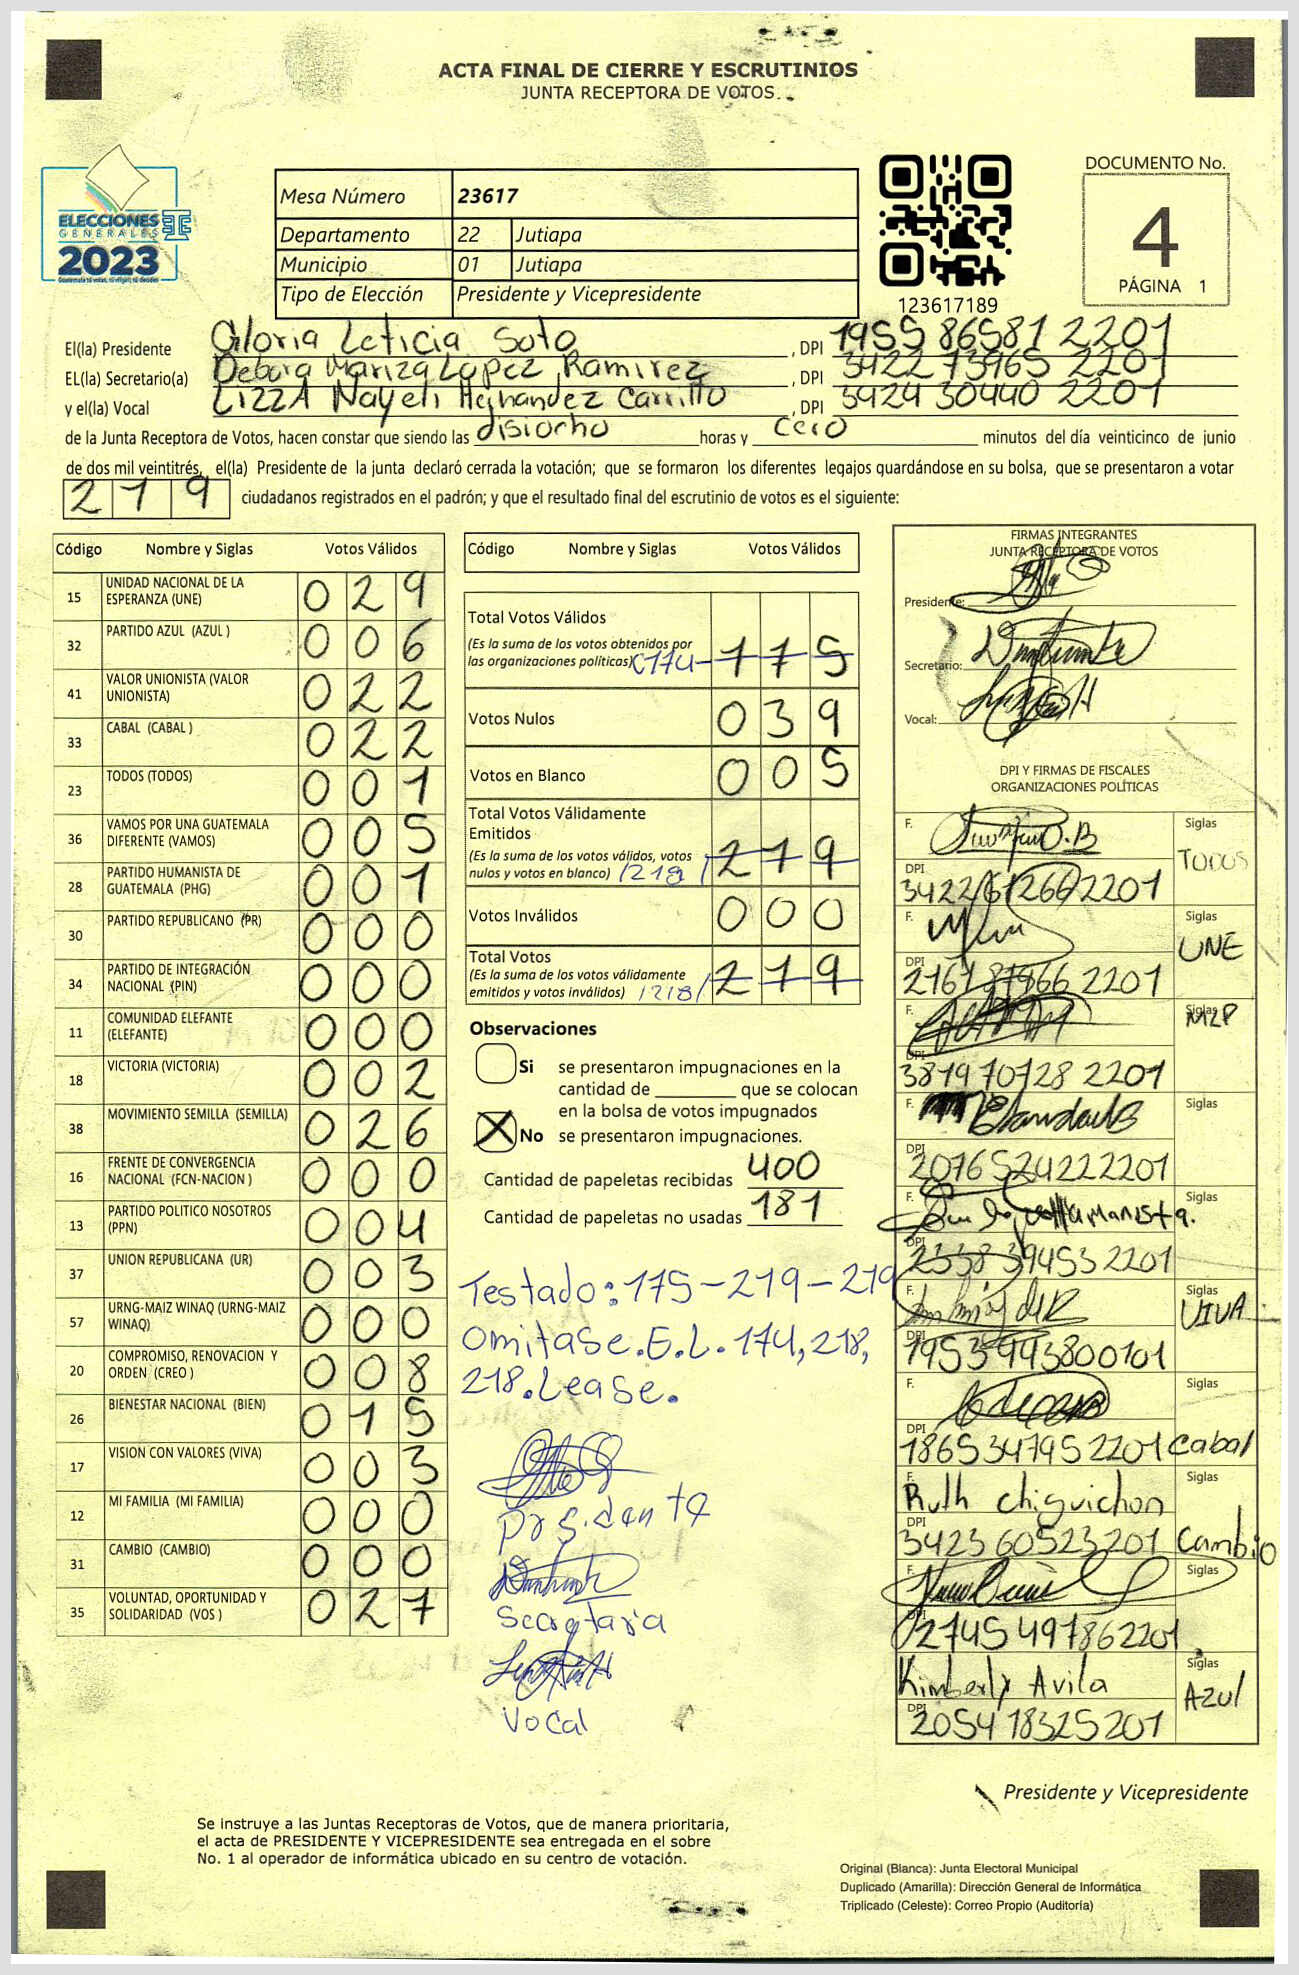 ACTA FINAL DE CIERRE Y ESCRUTINIOS
JUNTA RECEPTORA DE VOTOS.
ELECCIONES
GENERALES
2023
Mesa Número 23617
Departamento 22 Jutiapa
Municipio 01 Jutiapa
Tipo de Elección Presidente y Vicepresidente
123617189
DOCUMENTO No.
4
PÁGINA 1
El(la) Presidente Gloria Leticia Soto , DPI 1955 86581 2201
EL(la) Secretario(a) Debora Mariza Lopez Ramirez , DPI 3422 73965 2201
y el(la) Vocal Lizza Nayeli Hernandez Carrillo , DPI 3424 30440 2201
de la Junta Receptora de Votos, hacen constar que siendo las disiocho horas y cero minutos del día veinticinco de junio
de dos mil veintitrés, el(la) Presidente de la junta declaró cerrada la votación; que se formaron los diferentes legajos guardándose en su bolsa, que se presentaron a votar
219 ciudadanos registrados en el padrón; y que el resultado final del escrutinio de votos es el siguiente:
Código Nombre y Siglas Votos Válidos
15 UNIDAD NACIONAL DE LA ESPERANZA (UNE) 029
32 PARTIDO AZUL (AZUL ) 006
41 VALOR UNIONISTA (VALOR UNIONISTA) 022
33 CABAL (CABAL ) 022
23 TODOS (TODOS) 001
36 VAMOS POR UNA GUATEMALA DIFERENTE (VAMOS) 005
28 PARTIDO HUMANISTA DE GUATEMALA (PHG) 001
30 PARTIDO REPUBLICANO (PR) 000
34 PARTIDO DE INTEGRACIÓN NACIONAL (PIN) 000
11 COMUNIDAD ELEFANTE (ELEFANTE) 000
18 VICTORIA (VICTORIA) 002
38 MOVIMIENTO SEMILLA (SEMILLA) 026
16 FRENTE DE CONVERGENCIA NACIONAL (FCN-NACION ) 000
13 PARTIDO POLITICO NOSOTROS (PPN) 004
37 UNION REPUBLICANA (UR) 003
57 URNG-MAIZ WINAQ (URNG-MAIZ WINAQ) 000
20 COMPROMISO, RENOVACION Y ORDEN (CREO ) 008
26 BIENESTAR NACIONAL (BIEN) 015
17 VISION CON VALORES (VIVA) 003
12 MI FAMILIA (MI FAMILIA) 000
31 CAMBIO (CAMBIO) 000
35 VOLUNTAD, OPORTUNIDAD Y SOLIDARIDAD (VOS ) 027
Código Nombre y Siglas Votos Válidos
Total Votos Válidos
(Es la suma de los votos obtenidos por
las organizaciones políticas) 174 175
Votos Nulos 039
Votos en Blanco 005
Total Votos Válidamente
Emitidos
(Es la suma de los votos válidos, votos
nulos y votos en blanco) 218 219
Votos Inválidos 000
Total Votos
(Es la suma de los votos válidamente
emitidos y votos inválidos) 218 219
Observaciones
Si se presentaron impugnaciones en la
cantidad de ________ que se colocan
en la bolsa de votos impugnados
X No se presentaron impugnaciones.
Cantidad de papeletas recibidas 400
Cantidad de papeletas no usadas 181
Testado: 175-219-219
Omitase. E.L. 174, 218,
218. Lease.
Presidenta
Secretaria
Vocal
FIRMAS INTEGRANTES
JUNTA RECEPTORA DE VOTOS
Presidente:
Secretario:
Vocal:
DPI Y FIRMAS DE FISCALES
ORGANIZACIONES POLÍTICAS
F. Siglas TODOS
DPI 3422 61266 2201
F. Siglas UNE
DPI 2201
F. Siglas MLP
DPI 3819 70728 2201
F. Siglas
DPI 2076524222201
F. Siglas
DPI 2338 39453 2201
F. Siglas VIVA
DPI 1953993800101
F. Siglas
DPI 1865347952201 Cabal
F. Ruth Chiguichon Siglas
DPI 3423 60523 2201 Cambio
F. Siglas
DPI 2745 497862201
Kimberly Avila Siglas AZUL
DPI 2054 18325 201
Presidente y Vicepresidente
Se instruye a las Juntas Receptoras de Votos, que de manera prioritaria,
el acta de PRESIDENTE Y VICEPRESIDENTE sea entregada en el sobre
No. 1 al operador de informática ubicado en su centro de votación.
Original (Blanca): Junta Electoral Municipal
Duplicado (Amarilla): Dirección General de Informática
Triplicado (Celeste): Correo Propio (Auditoría)